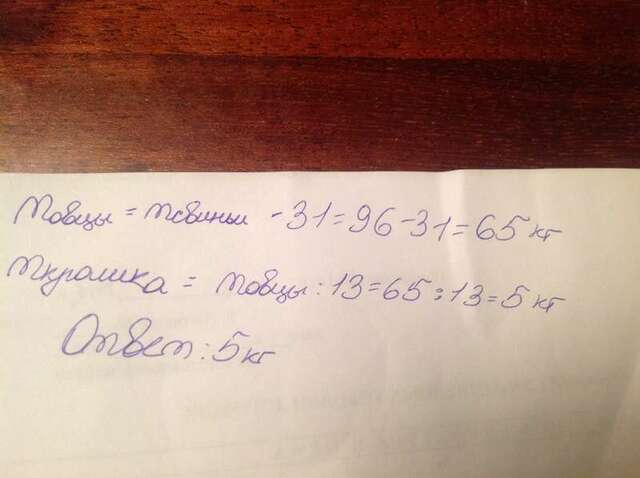 mовцы = mсвиньи - 31 = 96 - 31 = 65 кг
mкролика = mовцы : 13 = 65 : 13 = 5 кг
Ответ: 5 кг